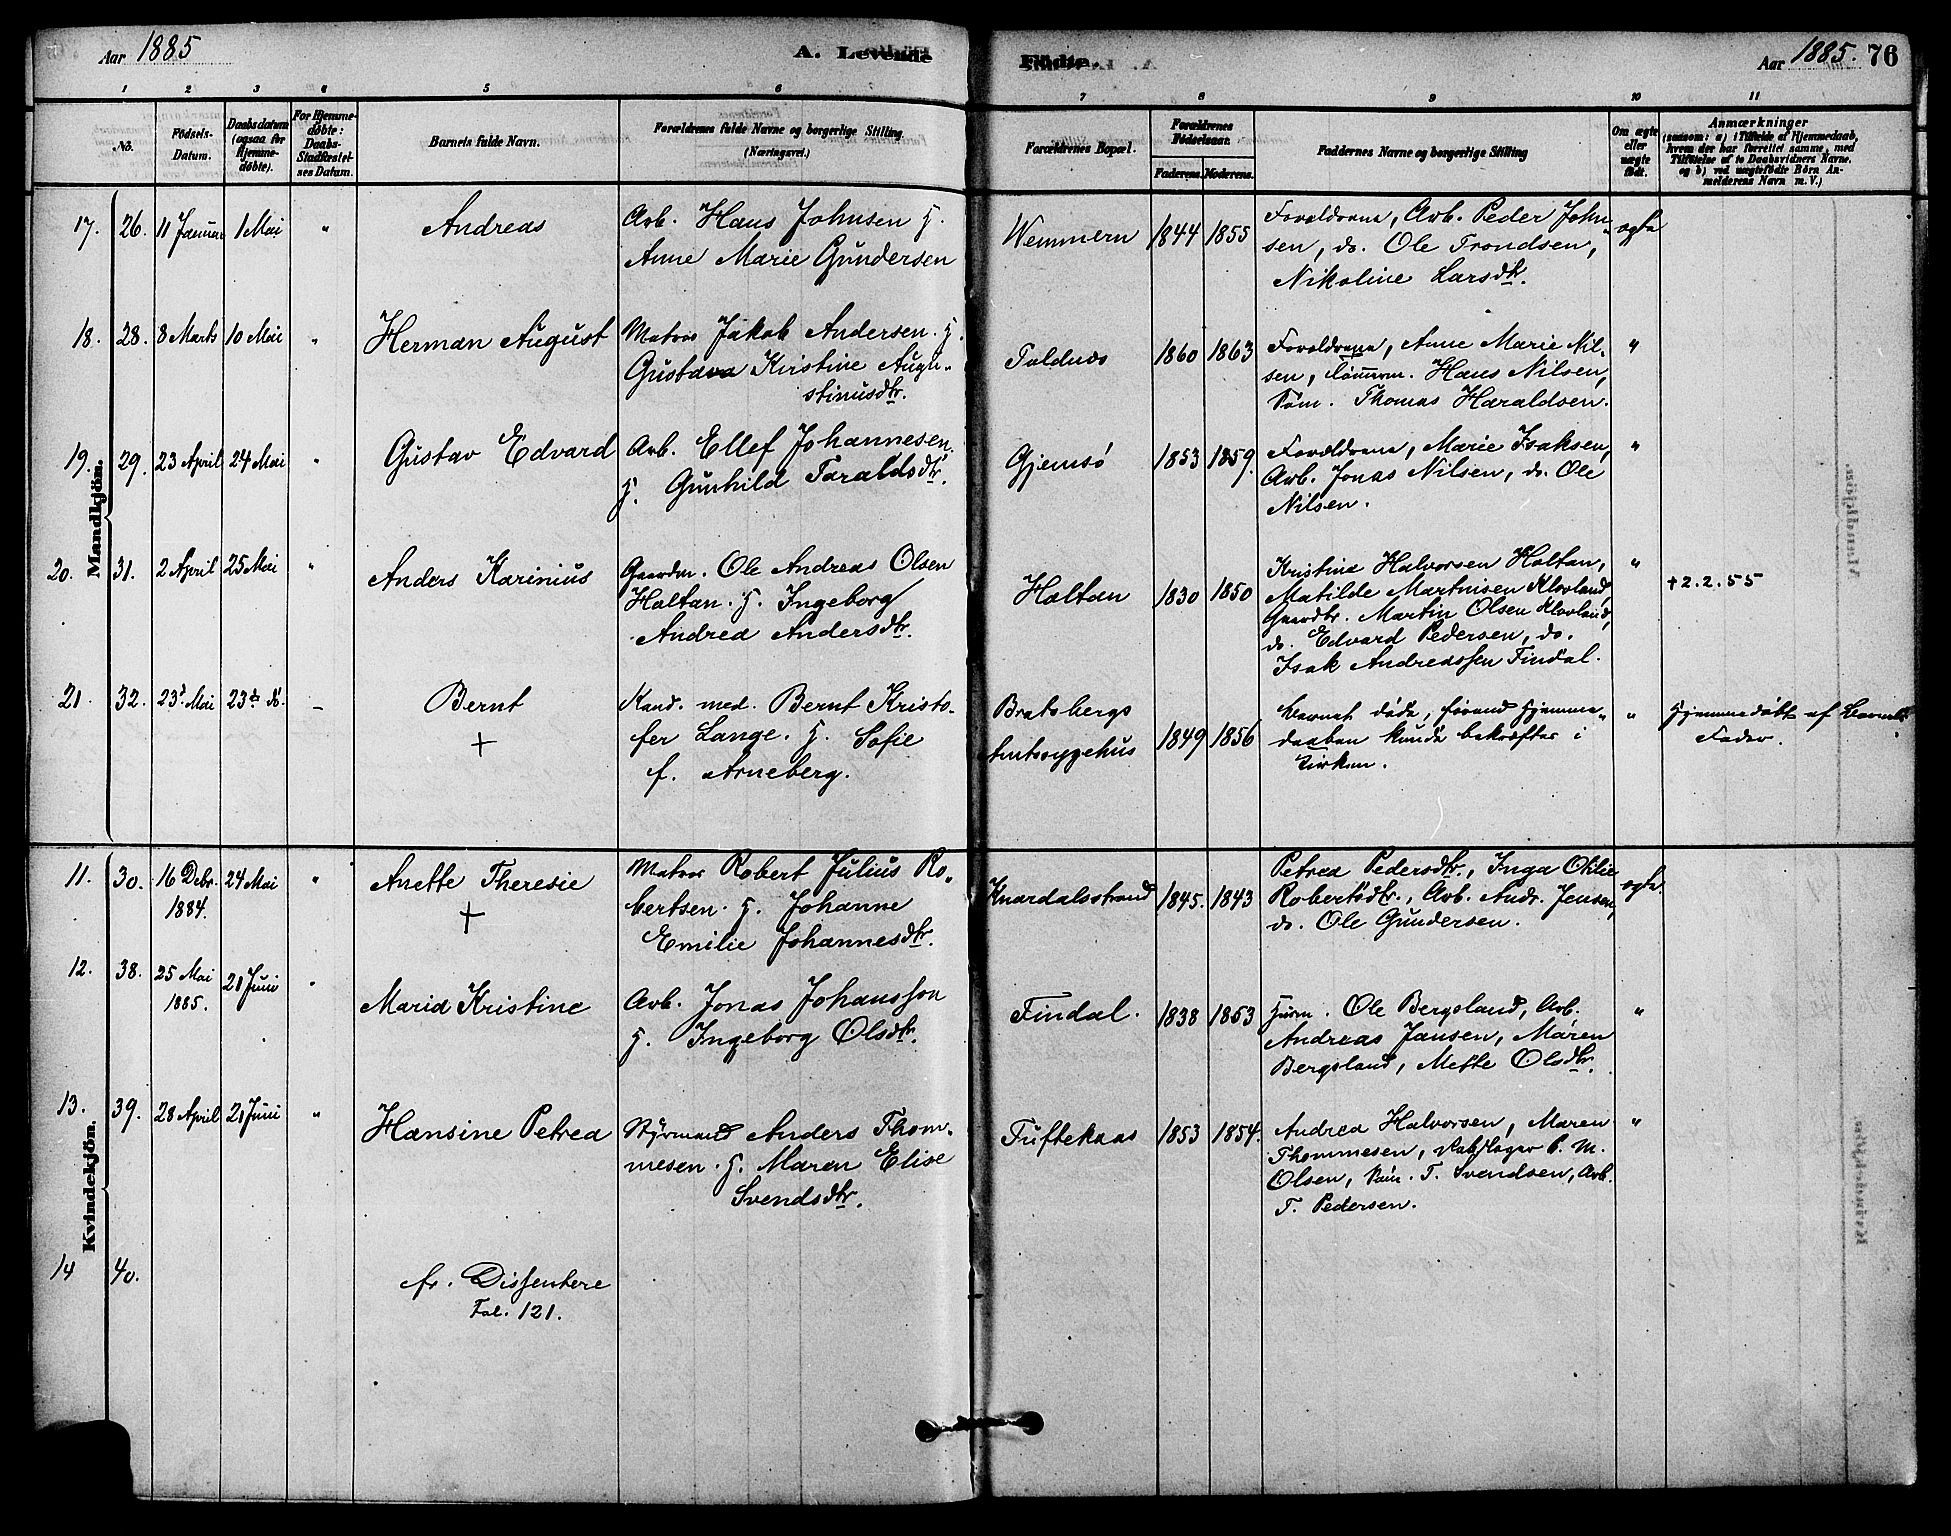 Aar 1885
A. Levende
Fødte.
Aar 1885. 76
1 2 3 4 5 6 7 8 9 10 11
No.
Fødsels-Datum.
Daabsdatum (ogsaa for Hjemmedøbte).
For Hjemmedøbte: Daabs-Stadfæstelses Datum.
Barnets fulde Navn.
Forældrenes fulde Navne og borgerlige Stilling. (Næringsvei.)
Forældrenes Bopæl.
Forældrenes Fødselsaar.
Faderens. Moderens.
Faddernes Navne og borgerlige Stilling
Om ægte eller uægte født.
Anmærkninger
(saasom: a) i Tilfælde af Hjemmedaab,
hvem der har forrettet samme, med
Tilføielse af to Daabsvidners Navne.
og b) ved uægtefødte Børn Anmelderens Navn m. V.)
Mandkjön.
17. 26. 11 Januar 1 Mai " Andreas
Arb. Hans Johnsen H.
Anne Marie Gundersen
Wemmern 1844 1855
Forældrene, Arb. Peder John-
sen, do. Ole Trondsen,
Nikoline Larsdtr.
ægte
18. 28. 8 Marts 10 Mai " Herman August
Matros Jakob Andersen. H.
Gustava Kristine Augu-
stinusdtr.
Foldnæs 1860 1863
Forældrene, Anne Marie Nil-
sen, Tømmerm. Hans Nilsen,
Søm. Thomas Haraldsen.
"
19. 29. 23 April 24 Mai " Gustav Edvard
Arb. Ellef Johannesen.
H. Gunhild Taraldsdtr.
Gjemsø 1853 1859.
Forældrene, Marie Isaksen,
Arb. Jonas Nilsen, do. Ole
Nilsen.
"
20. 31. 2 April 25 Mai " Anders Karinius
Gaardm. Ole Andreas Olsen
Holtan. H. Ingeborg
Andrea Andersdtr.
Holtan 1830 1850
Kristine Halvorsen Holtan,
Matilde Martinisen Klovland,
Gaardbr. Martin Olsen Klovland,
do. Edvard Pedersen, do.
Isak Andreassen Findal.
"
+ 2.2.55
21. 32. 23d Mai 23de do. – Bernt
+
Kand. med. Bernt Kristo-
fer Lange. H. Sofie
f. Arneberg.
Bratsbergs
Amtssygehus 1849 1856
Barnet døde, førend Hjemme-
daaben kunde bekræftes i
Kirken.
"
Hjemmedøbt af Barnets
Fader.
Kvindekjön.
11. 30. 16 Debr. 24 Mai "
1884.
Anette Theresie
+
Matros Robert Julius Ro-
bertsen. H. Johanne
Emilie Johannesdtr.
Knardalsstrand 1845. 1843
Petrea Pedersdtr., Inga Otilie
Robertsdtr., Arb. Andr. Jensen,
do. Ole Gundersen.
ægte
12. 38. 25 Mai 21 Juni "
1885.
Maria Kristine
Arb. Jonas Johansson
H. Ingeborg Olsdtr.
Findal. 1838 1853
Husm. Ole Bergsland, Arb.
Andreas Jansen, Maren
Bergsland, Mette Olsdtr.
"
13. 39. 28 April 21 Juni " Hansine Petrea
Styrmand Anders Thom-
mesen. H. Maren Elise
Svendsdtr.
Tuftekaas 1853 1854.
Andrea Halvorsen, Maren
Thommesen, P. M.
Olsen, Søm. T. Svendsen, Arb.
T. Pedersen.
"
14 40.
fr. Dissentere
Fol. 121.